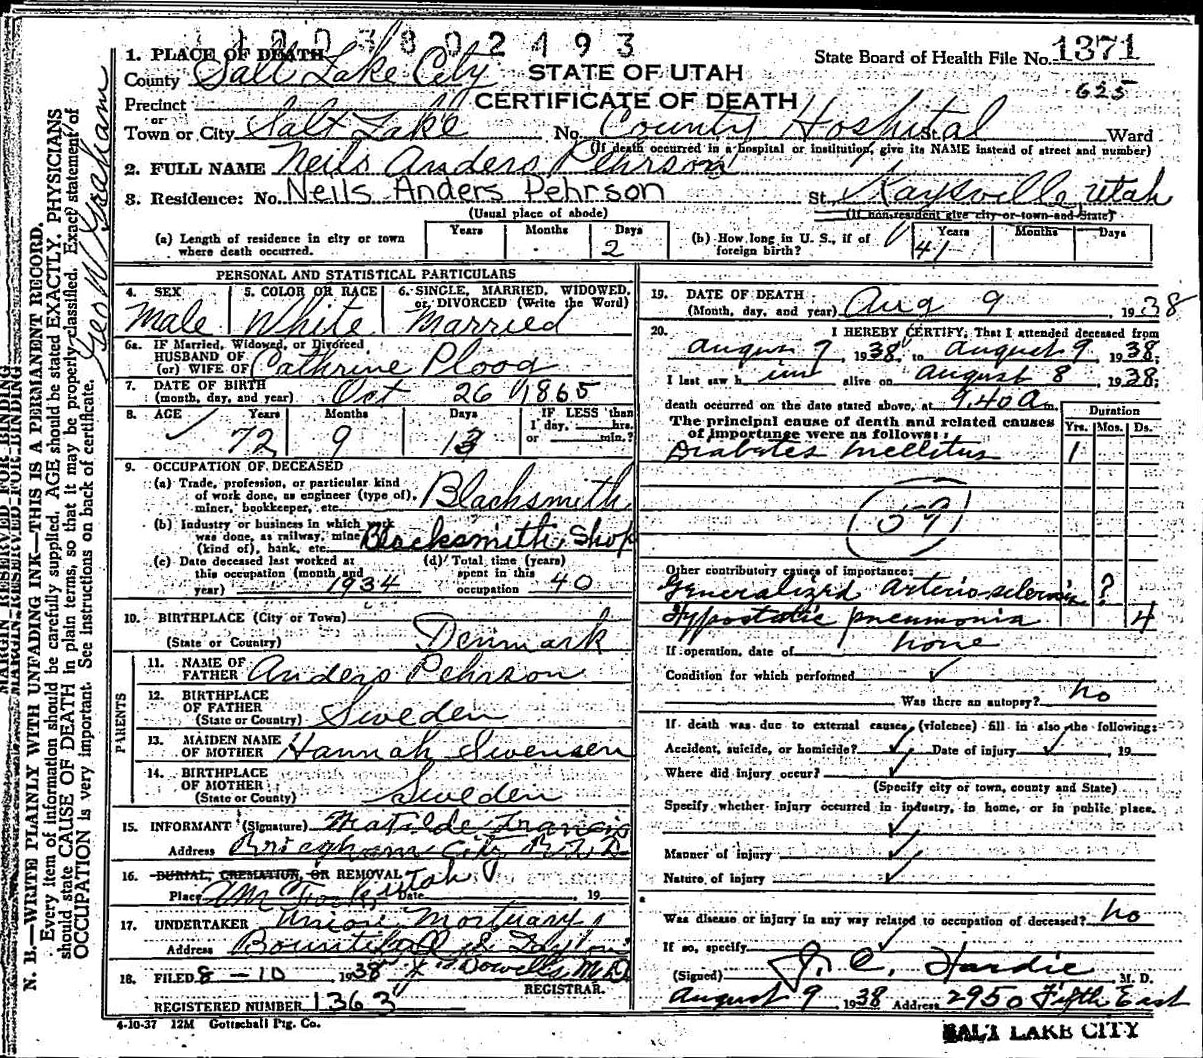 1203802493
1. PLACE OF DEATH
County Salt Lake City
STATE OF UTAH
CERTIFICATE OF DEATH
State Board of Health File No. 1371
625
Precinct
or
Town or City Salt Lake No. County Hospital St. Ward
(If death occurred in a hospital or institution, give its NAME instead of street and number)
2. FULL NAME Neils Anders Pehrson
3. Residence: No. Neils Anders Pehrson St. Kaysville, Utah
(Usual place of abode) (If non-resident give city or town and State)
(a) Length of residence in city or town where death occurred. Years Months Days 2
(b) How long in U. S., if of foreign birth? Years 41 Months Days
PERSONAL AND STATISTICAL PARTICULARS
4. SEX 5. COLOR OR RACE 6. SINGLE, MARRIED, WIDOWED, or DIVORCED (Write the Word)
Male White Married
6a. IF Married, Widowed, or Divorced
HUSBAND OF
(or) WIFE OF Cathrine Ploog
7. DATE OF BIRTH
(month, day, and year) Oct 26 1865
8. AGE Years Months Days IF LESS than
1 day, hrs.
or min.?
72 9 13
9. OCCUPATION OF DECEASED
(a) Trade, profession, or particular kind
of work done, as engineer (type of),
miner, bookkeeper, etc. Blacksmith
(b) Industry or business in which work
was done, as railway, mine
(kind of), bank, etc. Blacksmith Shop
(c) Date deceased last worked at
this occupation (month and
year) 1934
(d) Total time (years)
spent in this
occupation 40
10. BIRTHPLACE (City or Town)
(State or Country) Denmark
PARENTS
11. NAME OF
FATHER Anders Pehrson
12. BIRTHPLACE
OF FATHER
(State or Country) Sweden
13. MAIDEN NAME
OF MOTHER Hannah Swensen
14. BIRTHPLACE
OF MOTHER
(State or County) Sweden
15. INFORMANT (Signature) Matilde Francis
Address Brigham City R.F.D.
16. BURIAL, CREMATION, OR REMOVAL Utah
Place Date 19
17. UNDERTAKER Union Mortuary
Address Bountiful & Layton
18. FILED 8-10 1938 M.D.
REGISTRAR.
REGISTERED NUMBER 1363
4-10-37 12M Gottschall Ptg. Co.
19. DATE OF DEATH
(Month, day, and year) Aug 9 1938
20. I HEREBY CERTIFY, That I attended deceased from
August 7, 1938, to August 9, 1938;
I last saw h im alive on August 8, 1938;
death occurred on the date stated above, at 9:40 a m.
Duration
Yrs. Mos. Ds.
The principal cause of death and related causes
of importance were as follows:
Diabetes Mellitus 1
59
Other contributory causes of importance:
Generalized Arteriosclerosis ?
Hypostatic pneumonia 4
If operation, date of none
Condition for which performed
Was there an autopsy? no
If death was due to external causes (violence) fill in also the following:
Accident, suicide, or homicide? Date of injury 19
Where did injury occur?
(Specify city or town, county and State)
Specify whether injury occurred in industry, in home, or in public place.
Manner of injury
Nature of injury
Was disease or injury in any way related to occupation of deceased? no
If so, specify
(Signed) J. C. Hardie M. D.
August 9 1938 Address 2950 Fifth East
SALT LAKE CITY
MARGIN RESERVED FOR BINDING
N. B.—WRITE PLAINLY WITH UNFADING INK—THIS IS A PERMANENT RECORD.
Every item of information should be carefully supplied. AGE should be stated EXACTLY. PHYSICIANS
should state CAUSE OF DEATH in plain terms, so that it may be properly classified. Exact statement of
OCCUPATION is very important. See instructions on back of certificate.